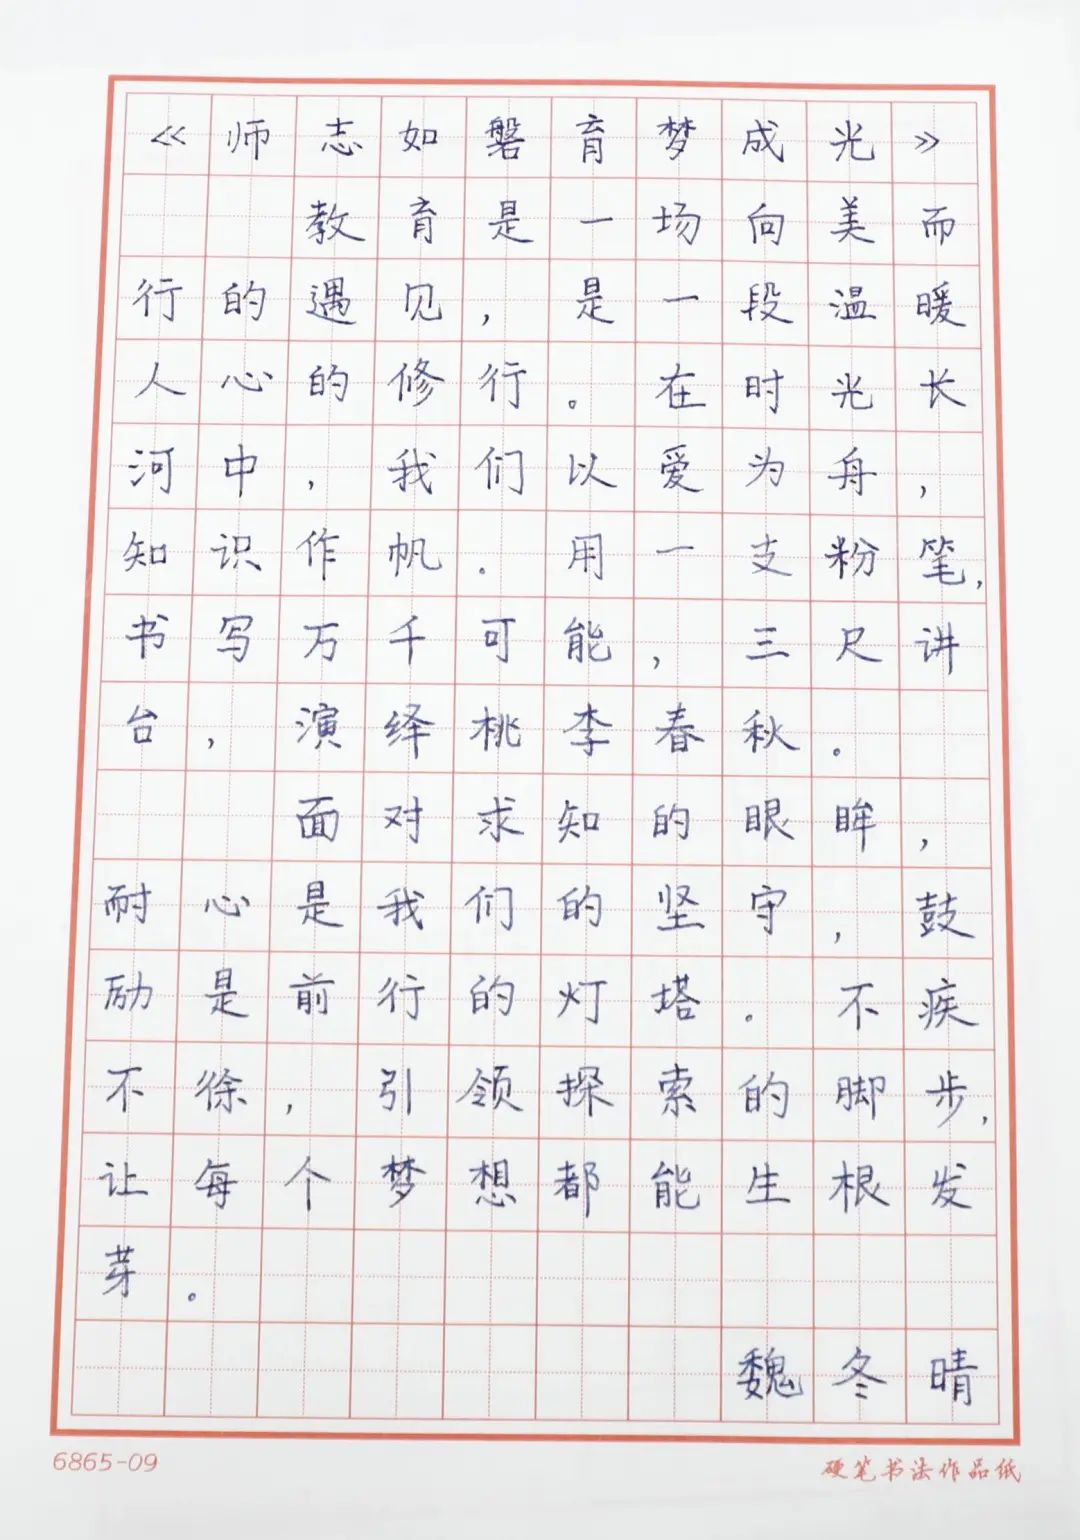 《师志如磐育梦成光》
教育是一场向美而
行的遇见，是一段温暖
人心的修行。在时光长
河中，我们以爱为舟，
知识作帆.用一支粉笔，
书写万千可能，三尺讲
台，演绎桃李春秋。
面对求知的眼眸，
耐心是我们的坚守，鼓
励是前行的灯塔。不疾
不徐，引领探索的脚步，
让每个梦想都能生根发
芽。
魏冬晴
6865-09 硬笔书法作品纸